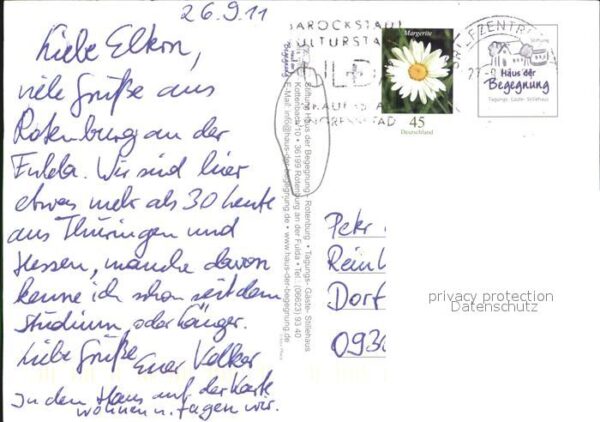 26.9.11
Liebe Elkon,
viele Grüße aus
Rotenburg an der
Fulda. Wir sind hier
etwas mehr als 30 Leute
aus Thüringen und
Hessen, manche davon
kenne ich schon seit dem
Studium, oder länger.
Liebe Grüße Euer Volker
In dem Haus auf der Karte
wohnen u. tagen wir.
Stiftung Haus der Begegnung Rotenburg • Tagungs- Gäste- Stillehaus
36199 Rotenburg an der Fulda • Tel.: (06623) 93 40
E-Mail: info@haus-der-begegnung.de • www.haus-der-begegnung.de
BAROCKSTADT
KULTURSTADT
Margerite
45
Deutschland
BRIEFZENTRUM
Stiftung
Haus der
Begegnung
Tagungs- Gäste- Stillehaus
Peter
Reinh
Dorf
0930
privacy protection
Datenschutz